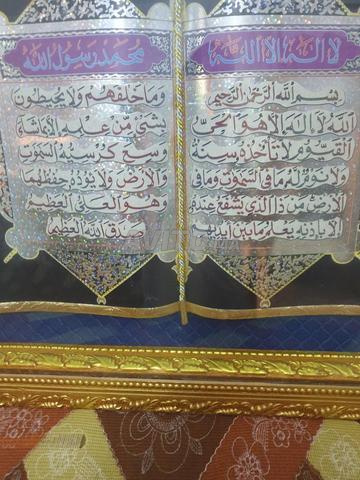 لا اله الا الله
بسم الله الرحمن الرحيم
الله لا اله الا هو الحي
القيوم لا تأخذه سنة
ولا نوم له ما في السموت وما في
الارض من ذا الذي يشفع عنده
الا باذنه يعلم ما بين ايديهم
محمد رسول الله
وما خلفهم ولا يحيطون
بشئ من علمه الا بما شاء
وسع كرسيه السموت
والارض ولا يؤده حفظهما
وهو العلي العظيم
صدق الله العظيم